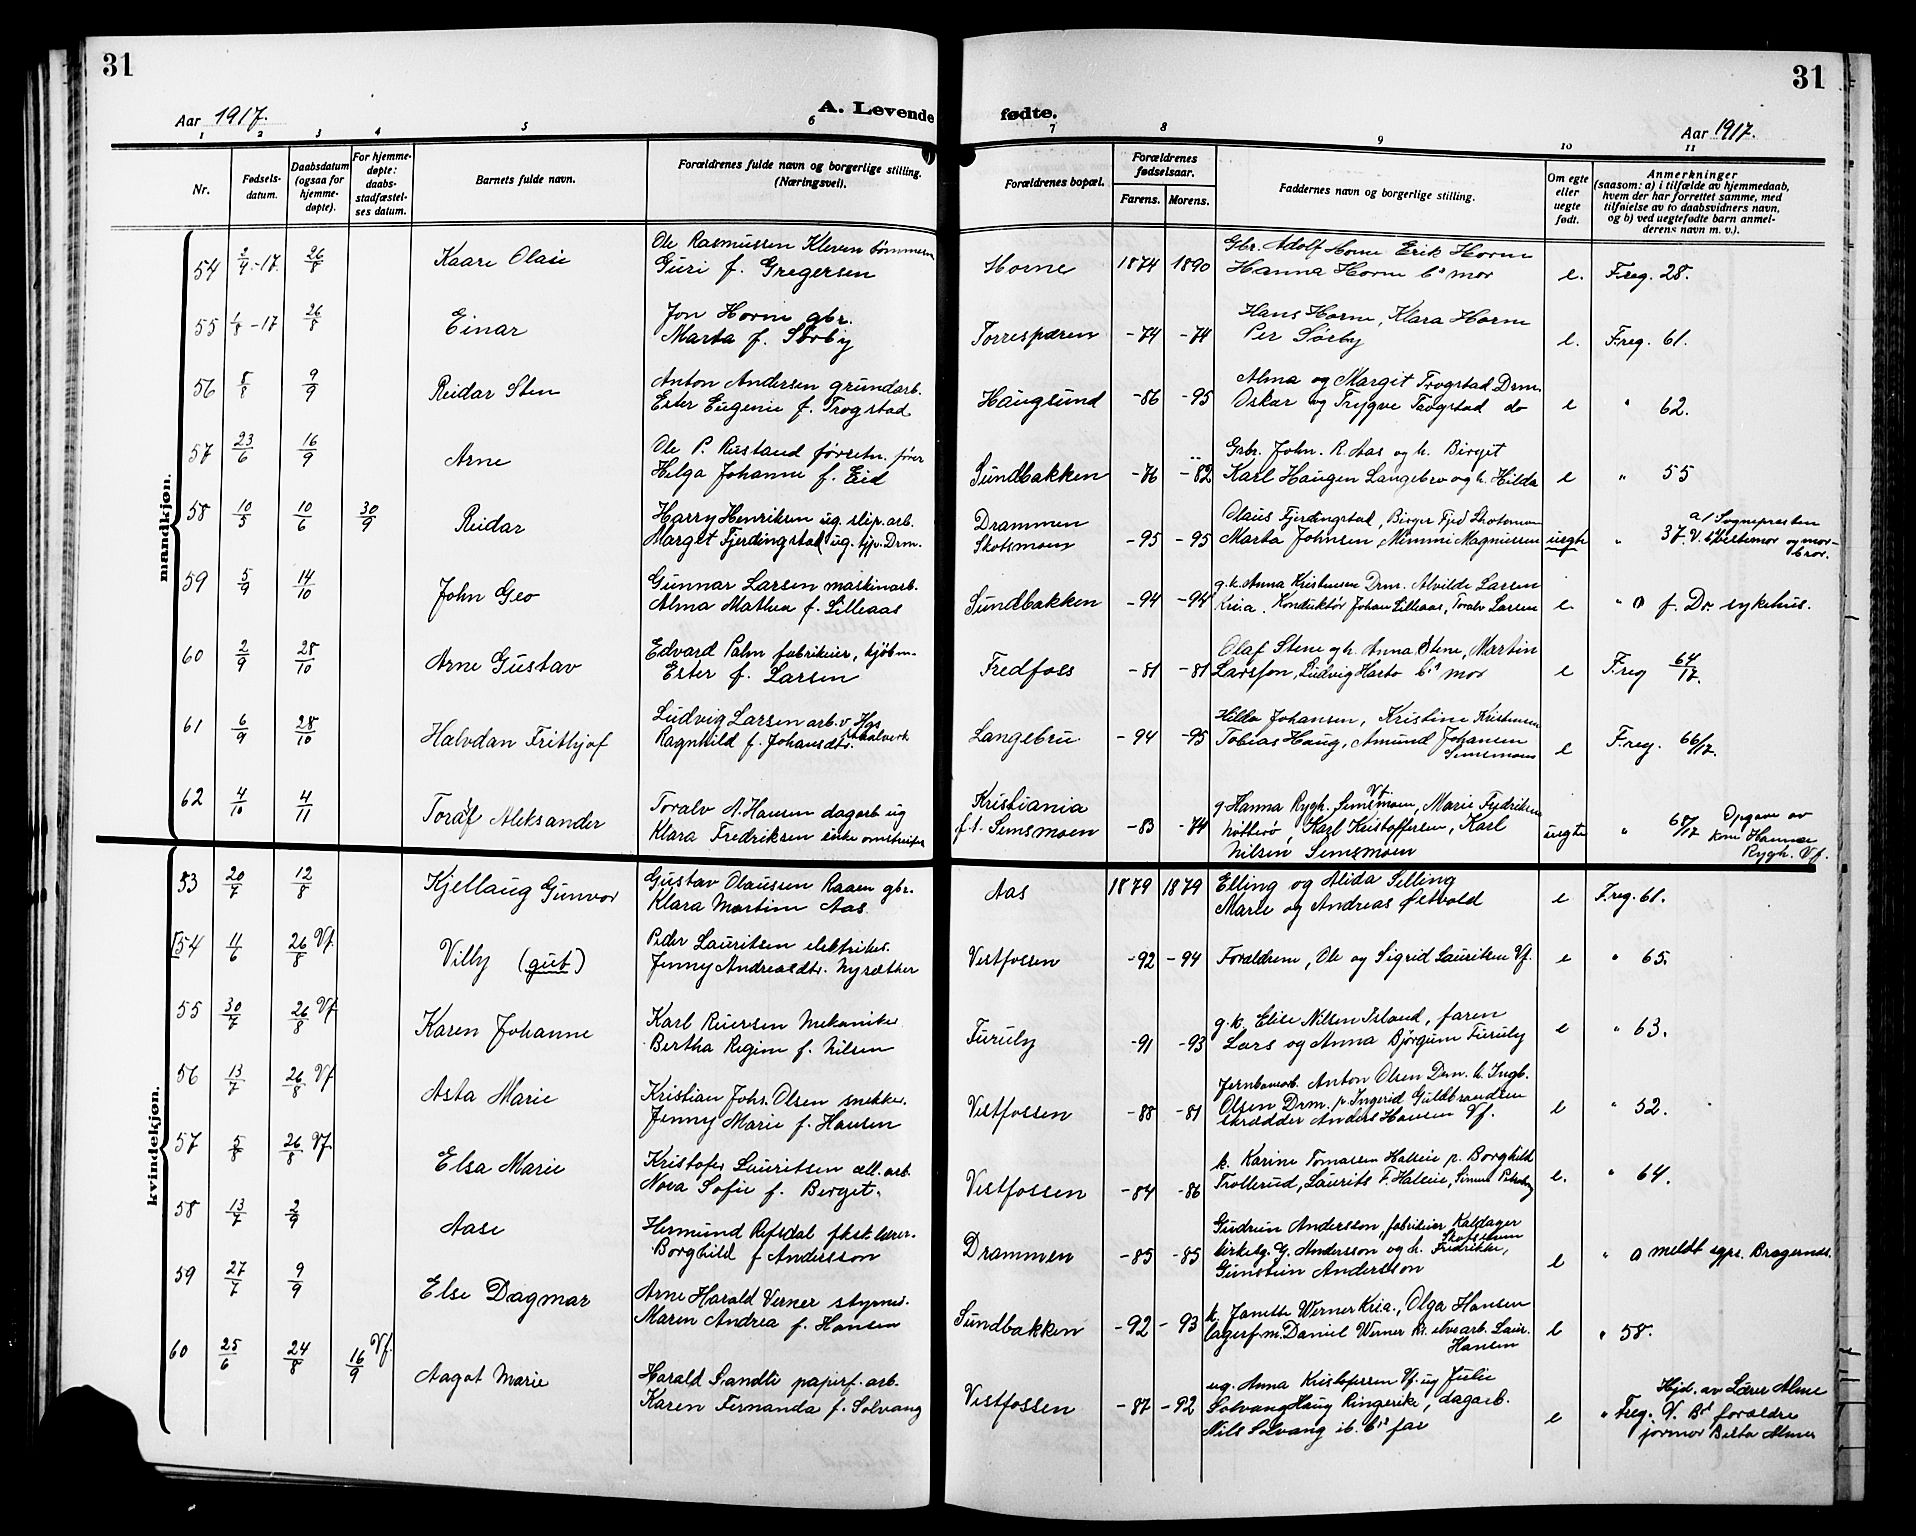 31
31
Aar 1917.
A. Levende fødte.
Aar 1917.
1 2 3 4 5 6 7 8 9 10 11
Nr.
Fødsels-
datum.
Daabsdatum
(ogsaa for
hjemme-
døpte).
For hjemme-
døpte:
daabs-
stadfæstel-
ses datum.
Barnets fulde navn.
Forældrenes fulde navn og borgerlige stilling.
(Næringsvei).
Forældrenes bopæl.
Forældrenes
fødselsaar.
Farens. Morens.
Faddernes navn og borgerlige stilling.
Om egte
eller
uegte
født.
Anmerkninger
(saasom: a) i tilfælde av hjemmedaab,
hvem der har forrettet samme, med
tilføielse av to daabsvidners navn,
og b) ved uegtefødte barn anmel-
derens navn m. v.).
mandkjøn.
54 2/9-17 26/8 Kaare Olai
Ole Rasmussen Kleven tømmerm
Guri f. Gregersen
Horne 1874 1890
Gbr. Adolf Horne Erik Horne
Hanna Horne bs mor
e. Freg. 28.
55 1/8-17 26/8 Einar
Jon Horne gbr.
Marta f. Sørby
Torrespæren -74 -74
Hans Horne, Klara Horne
Per Sørby
e. Freg. 61.
56 8/8 9/9 Reidar Sten
Anton Andersen grundarb.
Ester Eugenie f. Trogstad
Haugsund -86 -95
Alma og Margit Trogstad Drm.
Oskar og Trygve Trogstad do
e " 62.
57 23/6 16/9 Arne
Ole P. Rustand forretn. fører
Helga Johanne f. Eid
Sundbakken -76 -82
Gbr. John. R. Aas og h. Birgit
Karl Haugen Langebro og h. Hilda
e " 55
58 10/5 10/6 30/9 Reidar
Harry Henriksen ug. slip. arb.
Margit Fjerdingstad ug. tjp. Drm.
Drammen
Skotsmoen -95 -95
Olaus Fjerdingstad, Birger Fjed Skotsmoen
Marta Johnsen, Mimmi Magnussen
uegte " 37. a/ Sognepresten
V. bestemor og mor-
bror.
59 5/9 14/10 John Geo
Gunnar Larsen maskinarb.
Alma Mathea f. Lilleaas
Sundbakken -94 -94
g.k. Anna Kristensen Drm. Alvilde Larsen
Kria. Konduktør Johan Lilleaas, Toralv Larsen
e. " f. Dr. sykehus.
60 2/9 28/10 Arne Gustav
Edvard Palm fabrikeier, kjøbm.
Ester f. Larsen
Fredfoss -81 -81
Olaf Stene og h. Anna Stene, Martin
Larsson, Ludvig Harbo bs mor
e Freg 64/17.
61 6/9 28/10 Halvdan Frithjof
Ludvig Larsen arb. v. Hgs
Ragnhild f. Johansdtr.
Langebru -94 -95
Hilda Johansen, Kristine Kristensen
Tobias Haug, Amund Johansen
Semsmoen
e Freg. 66/17.
62 4/10 4/11 Toralf Aleksander
Toralv A. Hansen dagarb ug
Klara Fredriksen enke
Kristiania
f.t. Semsmoen -83 -74
g Hanna Rygh. Semsmoen, Vf. Marie Fredriksen
Nøtterø Karl Kristoffersen, Karl
Nilsen Semsmoen
uegte " 68/17 Opgave av
kone Hanna
Rygh. Vf.
kvindekjøn.
53 20/7 12/8 Kjellaug Gunvor
Gustav Olaussen Raaen gbr.
Klara Martine Aas
Aas 1879 1879
Elling og Alida Selling
Marie og Andreas Østvold
e Freg. 61.
[54 11/6 26/8 Vf. Villy (gut)
Peder Lauritsen elektriker.
Jenny Andreasdtr. Nysæther
Vestfossen -92 -94
Forældrene, Ole og Sigrid Lauritsen Vf.
e " 65.
55 30/7 26/8 Vf Karen Johanne
Karl Ruersen Mekaniker
Bertha Regine f. Nilsen
Furuly -91 -93
g.k. Elise Nilsen Island, faren
Lars og Anna Bjørgum Furuly
e " 63.
56 13/7 26/8 Vf Asta Marie
Kristian Johs. Olsen snekker.
Jenny Marie f. Hansen
Vestfossen -88 -81
Jernbanearb. Anton Olsen Drm. h. Ingb.
Olsen Drm. p. Ingerid Guldbrandsen
skrædder Anders Hansen Vf.
e " 52.
57 5/8 26/8 Vf. Elsa Marie
Kristofer Lauritsen cell. arb.
Nora Sofie f. Berget.
Vestfossen -84 -86
k. Karine Tomassen Halseie p. Borghild
Trollerud, Laurits F. Halseie,
e. " 64.
58 13/7 2/9 Aase
Hermund Refsdal fkskl lærer.
Borghild f. Andersson
Drammen -85 -85
Gudrun Andersson, fabrikeier Kaldager
kirkesg. G. Andersson og h. Fredrikke,
Gunstein Andersson
e " meldt sgpr. Bragernes.
59 27/7 9/9 Else Dagmar
Arne Harald Verner styrm.
Maren Andrea f. Hansen
Sundbakken -92 -93
k. Janette Werner Kria., Olga Hansen
lagerf.m. Daniel Werner Kr. elvearb. Laur.
Hansen
e " 58.
60 25/6 24/8 16/9 Vf. Aagot Marie
Harald Sandli papirf. arb.
Karen Fernanda f. Solvang
Vestfossen -87 -92
ug. Anna Kristoffersen Vf. ug Julie
Solvang Haug Ringerike, dagarb.
Nils Solvang ib. bs far
e " Freg. Hjd. av Lærer Alme
V. Bs forældre
jormor Berta Alme